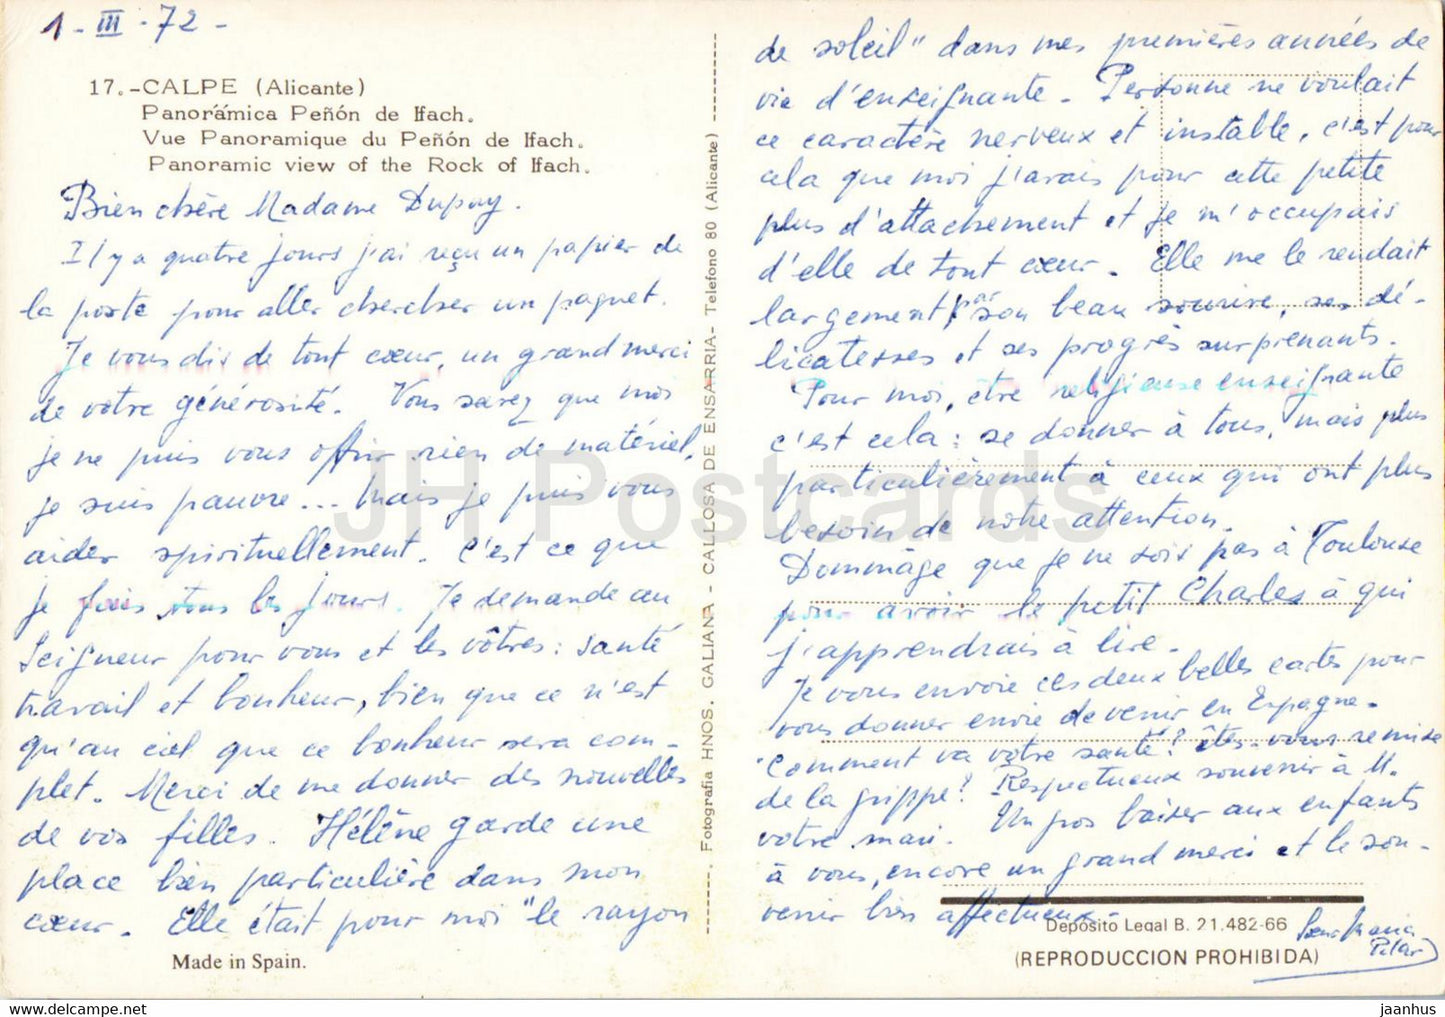 1-III-72-
17.-CALPE (Alicante)
Panoráámica Peñón de Ifach.
Vue Panoramique du Peñón de Ifach.
Panoramic view of the Rock of Ifach.
Bien chère Madame Dupuy.
Il y a quatre jours j'ai reçu un papier de
la poste pour aller chercher un paquet.
Je vous dis de tout cœur, un grand merci
de votre générosité. Vous savez que moi
je ne puis vous offrir rien de matériel,
je suis pauvre... Mais je puis vous
aider spirituellement. C'est ce que
je fais tous les jours. Je demande au
Seigneur pour vous et les vôtres: santé
travail et bonheur, bien que ce n'est
qu'au ciel que ce bonheur sera com-
plet. Merci de me donner des nouvelles
de vos filles. Hélène garde une
place bien particulière dans mon
cœur. Elle était pour moi "le rayon
Made in Spain.
Fotografia HNOS. GALIANA - CALLOSA DE ENSARRIA - Telefono 80 (Alicante)
de soleil" dans mes premières années de
vie d'enseignante. Personne ne voulait
ce caractère nerveux et instable, c'est pour
cela que moi j'avais pour cette petite
plus d'attachement et je m'occupais
d'elle de tout cœur. Elle me le rendait
largement par son beau sourire, ses dé-
licatesses et ses progrès surprenants.
Pour moi, être religieuse enseignante
c'est cela: se donner à tous, mais plus
particulièrement à ceux qui ont plus
besoin de notre attention.
Dommâge que je ne sois pas à Toulouse
pour avoir le petit Charles à qui
j'apprendrais à lire.
Je vous envoie ces deux belles cartes pour
vous donner envie de venir en Espagne.
Comment va votre santé? êtes-vous remise
de la grippe? Respectueux souvenir à M.
votre mari. Un gros baiser aux enfants
à vous, encore un grand merci et le sou-
venir bien affectueux.
Sœur Maria
Pilar
Depósito Legal B. 21.482-66
(REPRODUCCION PROHIBIDA)
JH Postcards
www.hippostcard.com
jaanhus